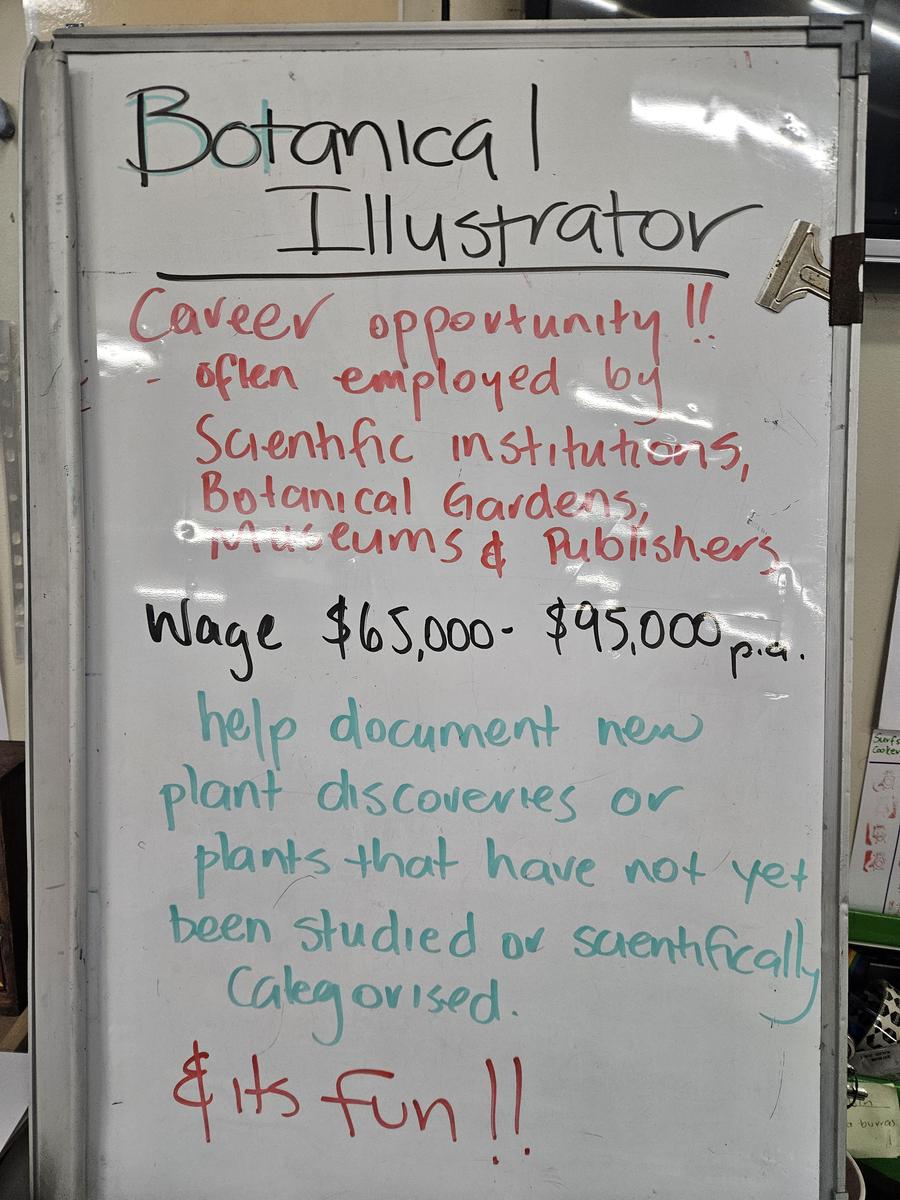 Botanical
Illustrator
Career opportunity!!
- often employed by
Scientific institutions,
Botanical Gardens,
Museums & Publishers
Wage $65,000- $95,000 p.a.
help document new
plant discoveries or
plants that have not yet
been studied or scientifically
Categorised.
& its fun!!